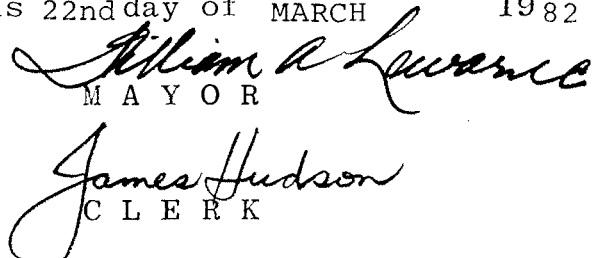 s 22nd day of MARCH 1982
William A Lawrence
MAYOR
James Hudson
CLERK